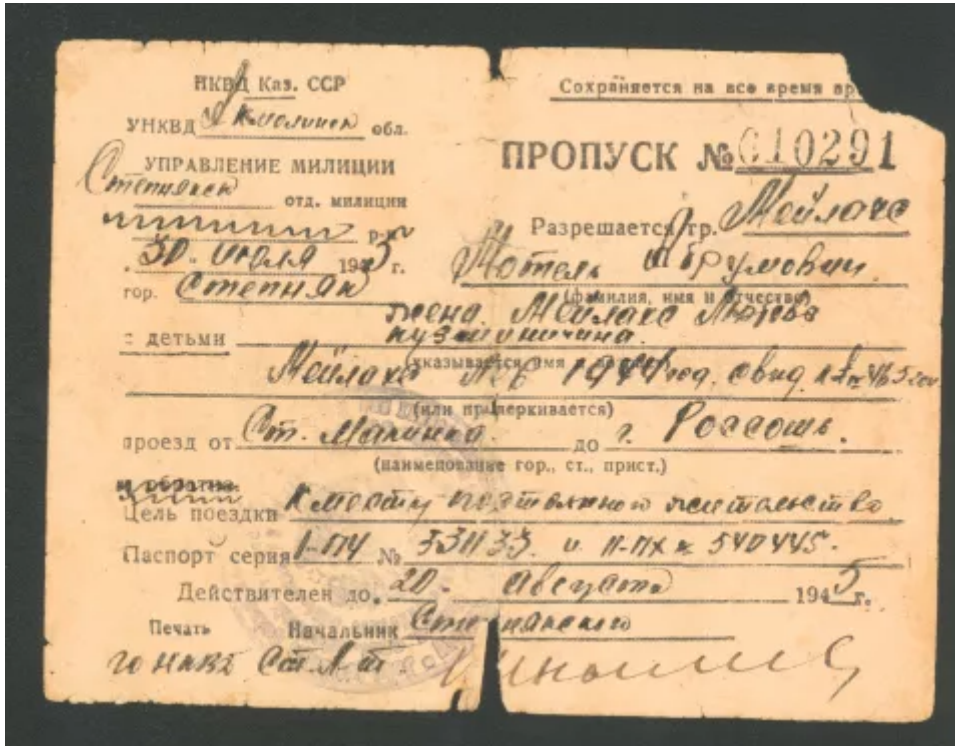 НКВД Каз. ССР
УНКВД Акмолинск обл.
УПРАВЛЕНИЕ МИЛИЦИИ
Степнякск отд. милиции
30. июля 1945 г.
гор. Степняк
Сохраняется на все время
ПРОПУСК № 010291
Разрешается гр. Мейлахс
Мотель Абрумович
(фамилия, имя и отчество)
жена Мейлахс
с детьми
(указывается имя
Мейлахс 1944 год. свид.
(или прочеркивается)
проезд от Ст. Макинка. до г. Россошь.
(наименование гор., ст., прист.)
и обратно
Цель поездки К месту постоянного жительства
Паспорт серия I-ПЧ № 531133. и II-ПХ № 540445.
Действителен до 20. Августа 1945 г.
Печать Начальник Степнянского
го НКВД